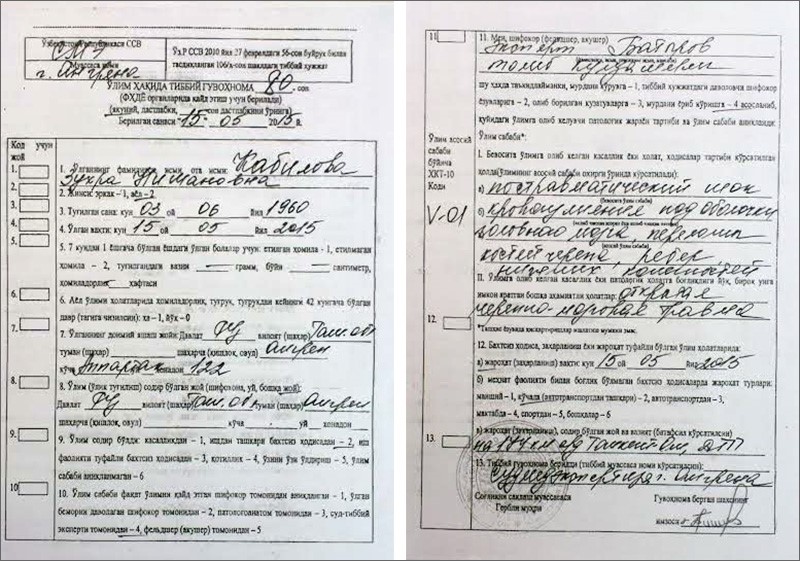 Ўзбекистон Республикаси ССВ
СМЭ
Муассаса номи
г. Ангрена
ЎзР ССВ 2010 йил 27 февралдаги 56-сон буйруқ билан
тасдиқланган 106/х-сон шаклдаги тиббий ҳужжат
ЎЛИМ ҲАҚИДА ТИББИЙ ГУВОҲНОМА 80 -сон
(ФҲДЁ органларида қайд этиш учун берилади)
(якуний, дастлабки, -сон дастлабкини ўрнига)
Берилган санаси " 15 - 05 2015 й.
Код учун
жой
1. Ўлганнинг фамилияси, исми, ота исми Кабилова
Зухра Нигмановна
2. Жинси: эркак – 1, аёл – 2
3. Туғилган сана: кун 03 ой 06 йил 1960
4. Ўлган вақти: кун 15 ой 05 йил 2015
5. 7 кундан 1 ёшгача бўлган ёшдаги ўлган болалар учун: етилган ҳомила - 1, етилмаган
ҳомила – 2, туғилгандаги вазни грамм, бўйи сантиметр,
ҳомиладорлик ҳафтаси
6. Аёл ўлими ҳолатларида ҳомиладорлик, туғруқ, туғруқдан кейинги 42 кунгача бўлган
давр (тагига чизилсин): ха – 1, йўқ – 0
7. Ўлганнинг доимий яшаш жойи: Давлат РУ вилоят (шаҳар) Таш.обл
туман (шаҳар) шаҳарча (қишлоқ, овул) Ангрен
кўча хонадон 122
8. Ўлим (ўлик туғилиш) содир бўлган жой (шифохона, уй, бошқа жой):
Давлат РУ вилоят (шаҳар) Таш.об туман (шаҳар) Ангрен
шаҳарча (қишлоқ, овул) кўча уй хонадон
9. Ўлим содир бўлди: касалликдан – 1, ишдан ташқари бахтсиз ҳодисадан – 2, иш
фаолияти туфайли бахтсиз ҳодисадан – 3, қотиллик – 4, ўзини ўзи ўлдириш – 5, ўлим
сабаби аниқланмаган – 6
10. Ўлим сабаби фақат ўлимни қайд этган шифокор томонидан аниқланган – 1, ўлган
беморни даволаган шифокор томонидан – 2, патологоанатом томонидан – 3, суд-тиббий
эксперти томонидан – 4, фельдшер (акушер) томонидан – 5
11. Мен, шифокор (фельдшер, акушер)
Эксперт
шу ҳақда таъкидлайманки, мурдани кўрувга – 1, тиббий ҳужжатдаги даволовчи шифокор
ёзувларига – 2, олиб борилган кузатувларга – 3, мурдани ёриб кўришга – 4 асосланиб,
қуйидаги ўлимга олиб келувчи патология жараён тартиби ва ўлим сабаби аниқланди:
Ўлим сабаби*:
Ўлим асосий
сабаби
бўйича
ХКТ-10
Коди
V-01
I. Бевосита ўлимга олиб келган касаллик ёки ҳолат, ҳодисалар тартиби кўрсатилган
ҳолда (ўлимнинг асосий сабаби охирги ўринда кўрсатилади):
а) постравматический шок
б) кровоизлияние под оболочки
головного мозга, переломы
костей черепа, ребер
нижних конечностей
II. Ўлимга олиб келган касаллик ёки патологик ҳолатга боғлиқлиги йўқ, бироқ унга
имкон яратган бошқа аҳамиятли ҳолатлар: открытая
черепно-мозговая травма
12. Бахтсиз ҳодиса, заҳарланиш ёки жароҳат туфайли бўлган ўлим ҳолатларида:
а) жароҳат (заҳарланиш) вақти: кун 15 ой 05 йил 2015
б) меҳнат фаолияти билан боғлиқ бўлмаган бахтсиз ҳодисаларда жароҳат турлари:
маиший – 1, кўчада (автотранспортдан ташқари) – 2, автотранспортдан – 3,
мактабда – 4, спортдан – 5, бошқалар – 6
в) жароҳат (заҳарланиш), содир бўлган жой ва вазият (батафсил кўрсатилсин)
на км а/д Ташкент-Ош, ДТП
13. Тиббий гувоҳнома берилди (тиббий муассаса номи кўрсатилсин):
Судмедэкспертиза г. Ангрена
Соғлиқни сақлаш муассасаси
Гербли муҳри
Гувоҳнома берган шахснинг
имзоси